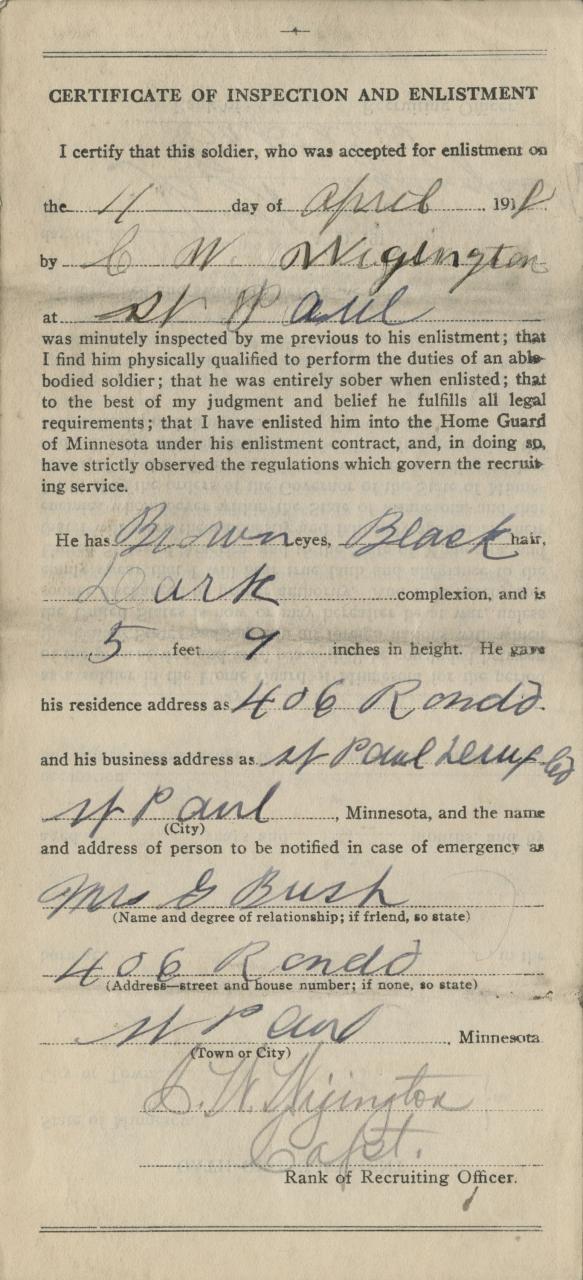 CERTIFICATE OF INSPECTION AND ENLISTMENT
I certify that this soldier, who was accepted for enlistment on
the 11 day of April 1918
by C W. Wigington
at St Paul
was minutely inspected by me previous to his enlistment; that
I find him physically qualified to perform the duties of an able-
bodied soldier; that he was entirely sober when enlisted; that
to the best of my judgment and belief he fulfills all legal
requirements; that I have enlisted him into the Home Guard
of Minnesota under his enlistment contract, and, in doing so,
have strictly observed the regulations which govern the recruit-
ing service.
He has Brown eyes, Black hair,
Dark complexion, and is
5 feet 9 inches in height. He gave
his residence address as 406 Rondo
and his business address as St Paul
St Paul, Minnesota, and the name
(City)
and address of person to be notified in case of emergency as
Mrs G Bush
(Name and degree of relationship; if friend, so state)
406 Rondo
(Address—street and house number; if none, so state)
St Paul, Minnesota
(Town or City)
C. W. Wigington
Capt.
Rank of Recruiting Officer.